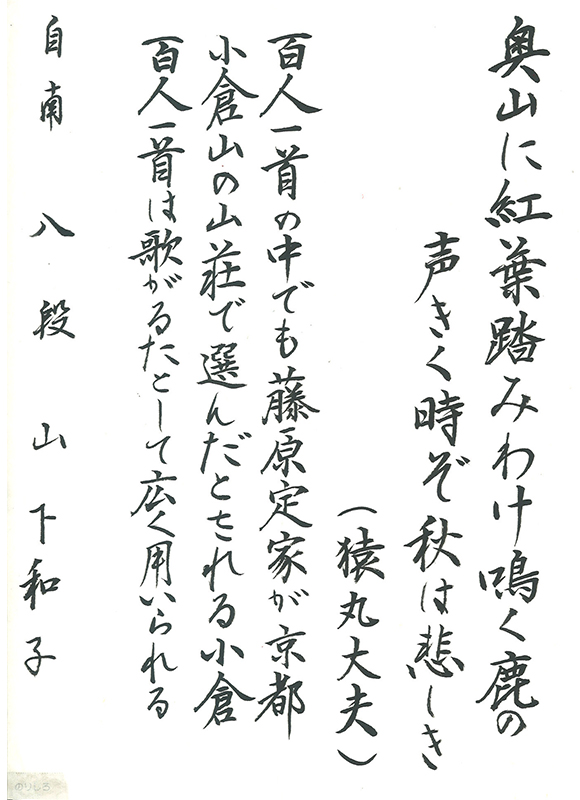 奥山に紅葉踏みわけ鳴く鹿の
声きく時ぞ秋は悲しき
（猿丸大夫）
百人一首の中でも藤原定家が京都
小倉山の山荘で選んだとされる小倉
百人一首は歌がるたとして広く用いられる
自南 八段 山下和子
のりしろ